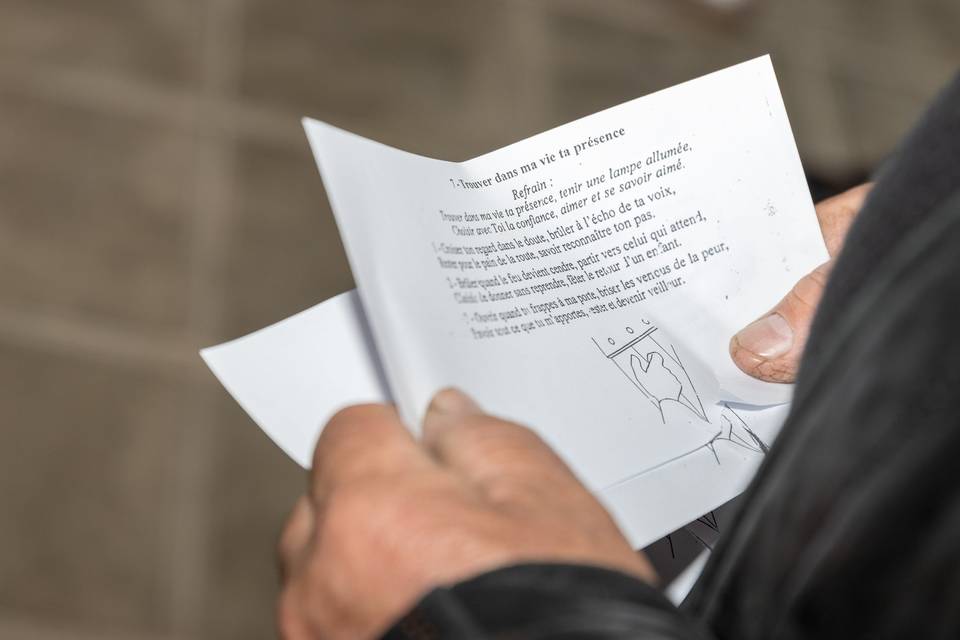 7-Trouver dans ma vie ta présence
Refrain :
Trouver dans ma vie ta présence, tenir une lampe allumée,
Choisir avec Toi la confiance, aimer et se savoir aimé.
1-Croiser ton regard dans le doute, brûler à l'écho de ta voix,
Rester pour le pain de la route, savoir reconnaître ton pas.
2-Brûler quand le feu devient cendre, partir vers celui qui attend,
Choisir de donner sans reprendre, fêter le retour d'un enfant.
Ouvrir quand tu frappes à ma porte, briser les verrous de la peur,
Savoir tout ce que tu m'apportes, rester et devenir veilleur.